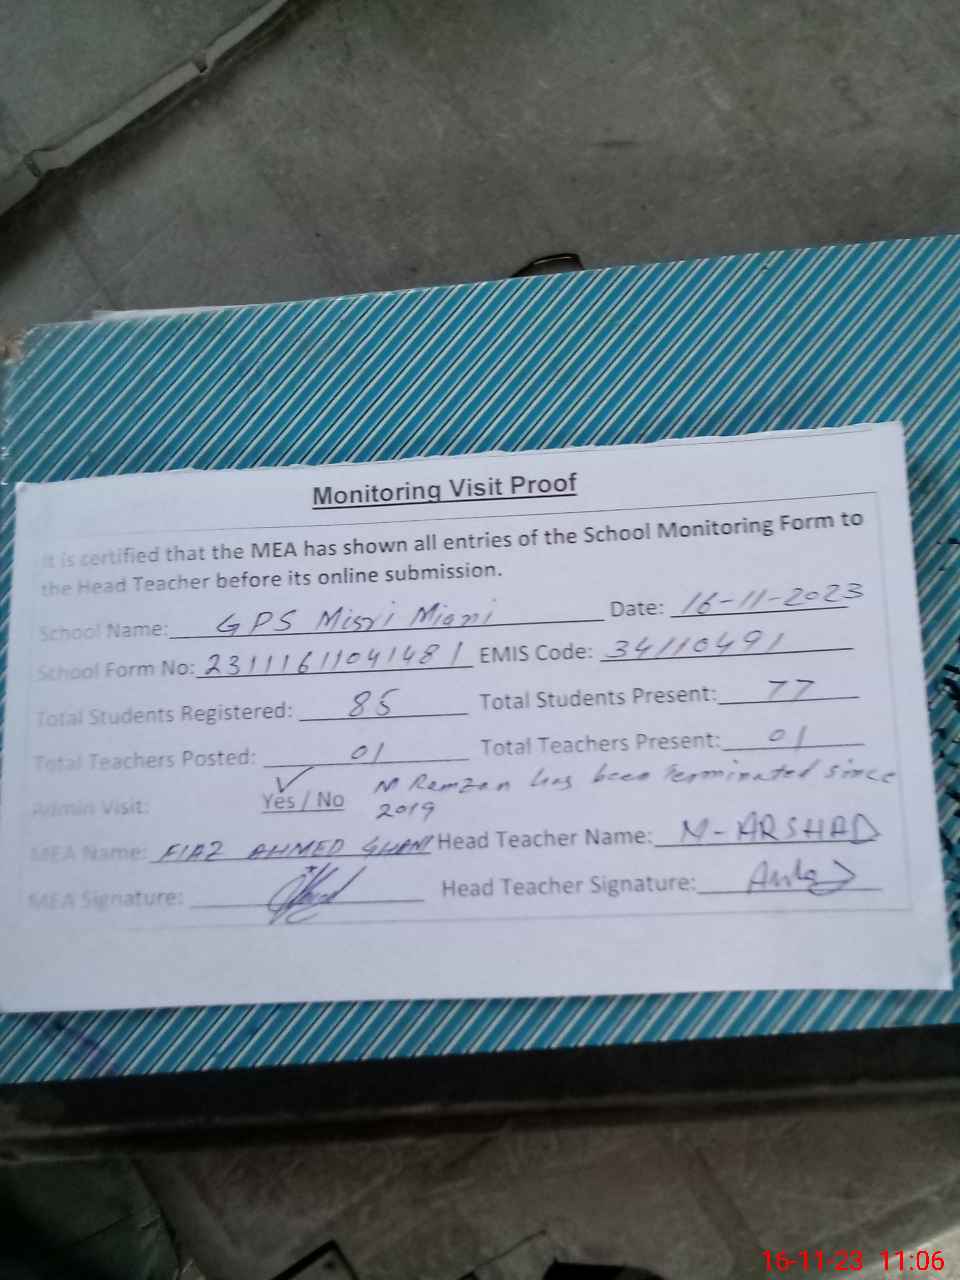 Monitoring Visit Proof
It is certified that the MEA has shown all entries of the School Monitoring Form to
the Head Teacher before its online submission.
School Name: GPS Misri Miani Date: 16-11-2023
School Form No: 23111611041481 EMIS Code: 34110491
Total Students Registered: 85 Total Students Present: 77
Total Teachers Posted: 01 Total Teachers Present: 01
Admin Visit: Yes / No M Ramzan has been terminated since
2019
MEA Name: FIAZ AHMED Head Teacher Name: M-ARSHAD
MEA Signature: Head Teacher Signature:
16-11-23 11:06